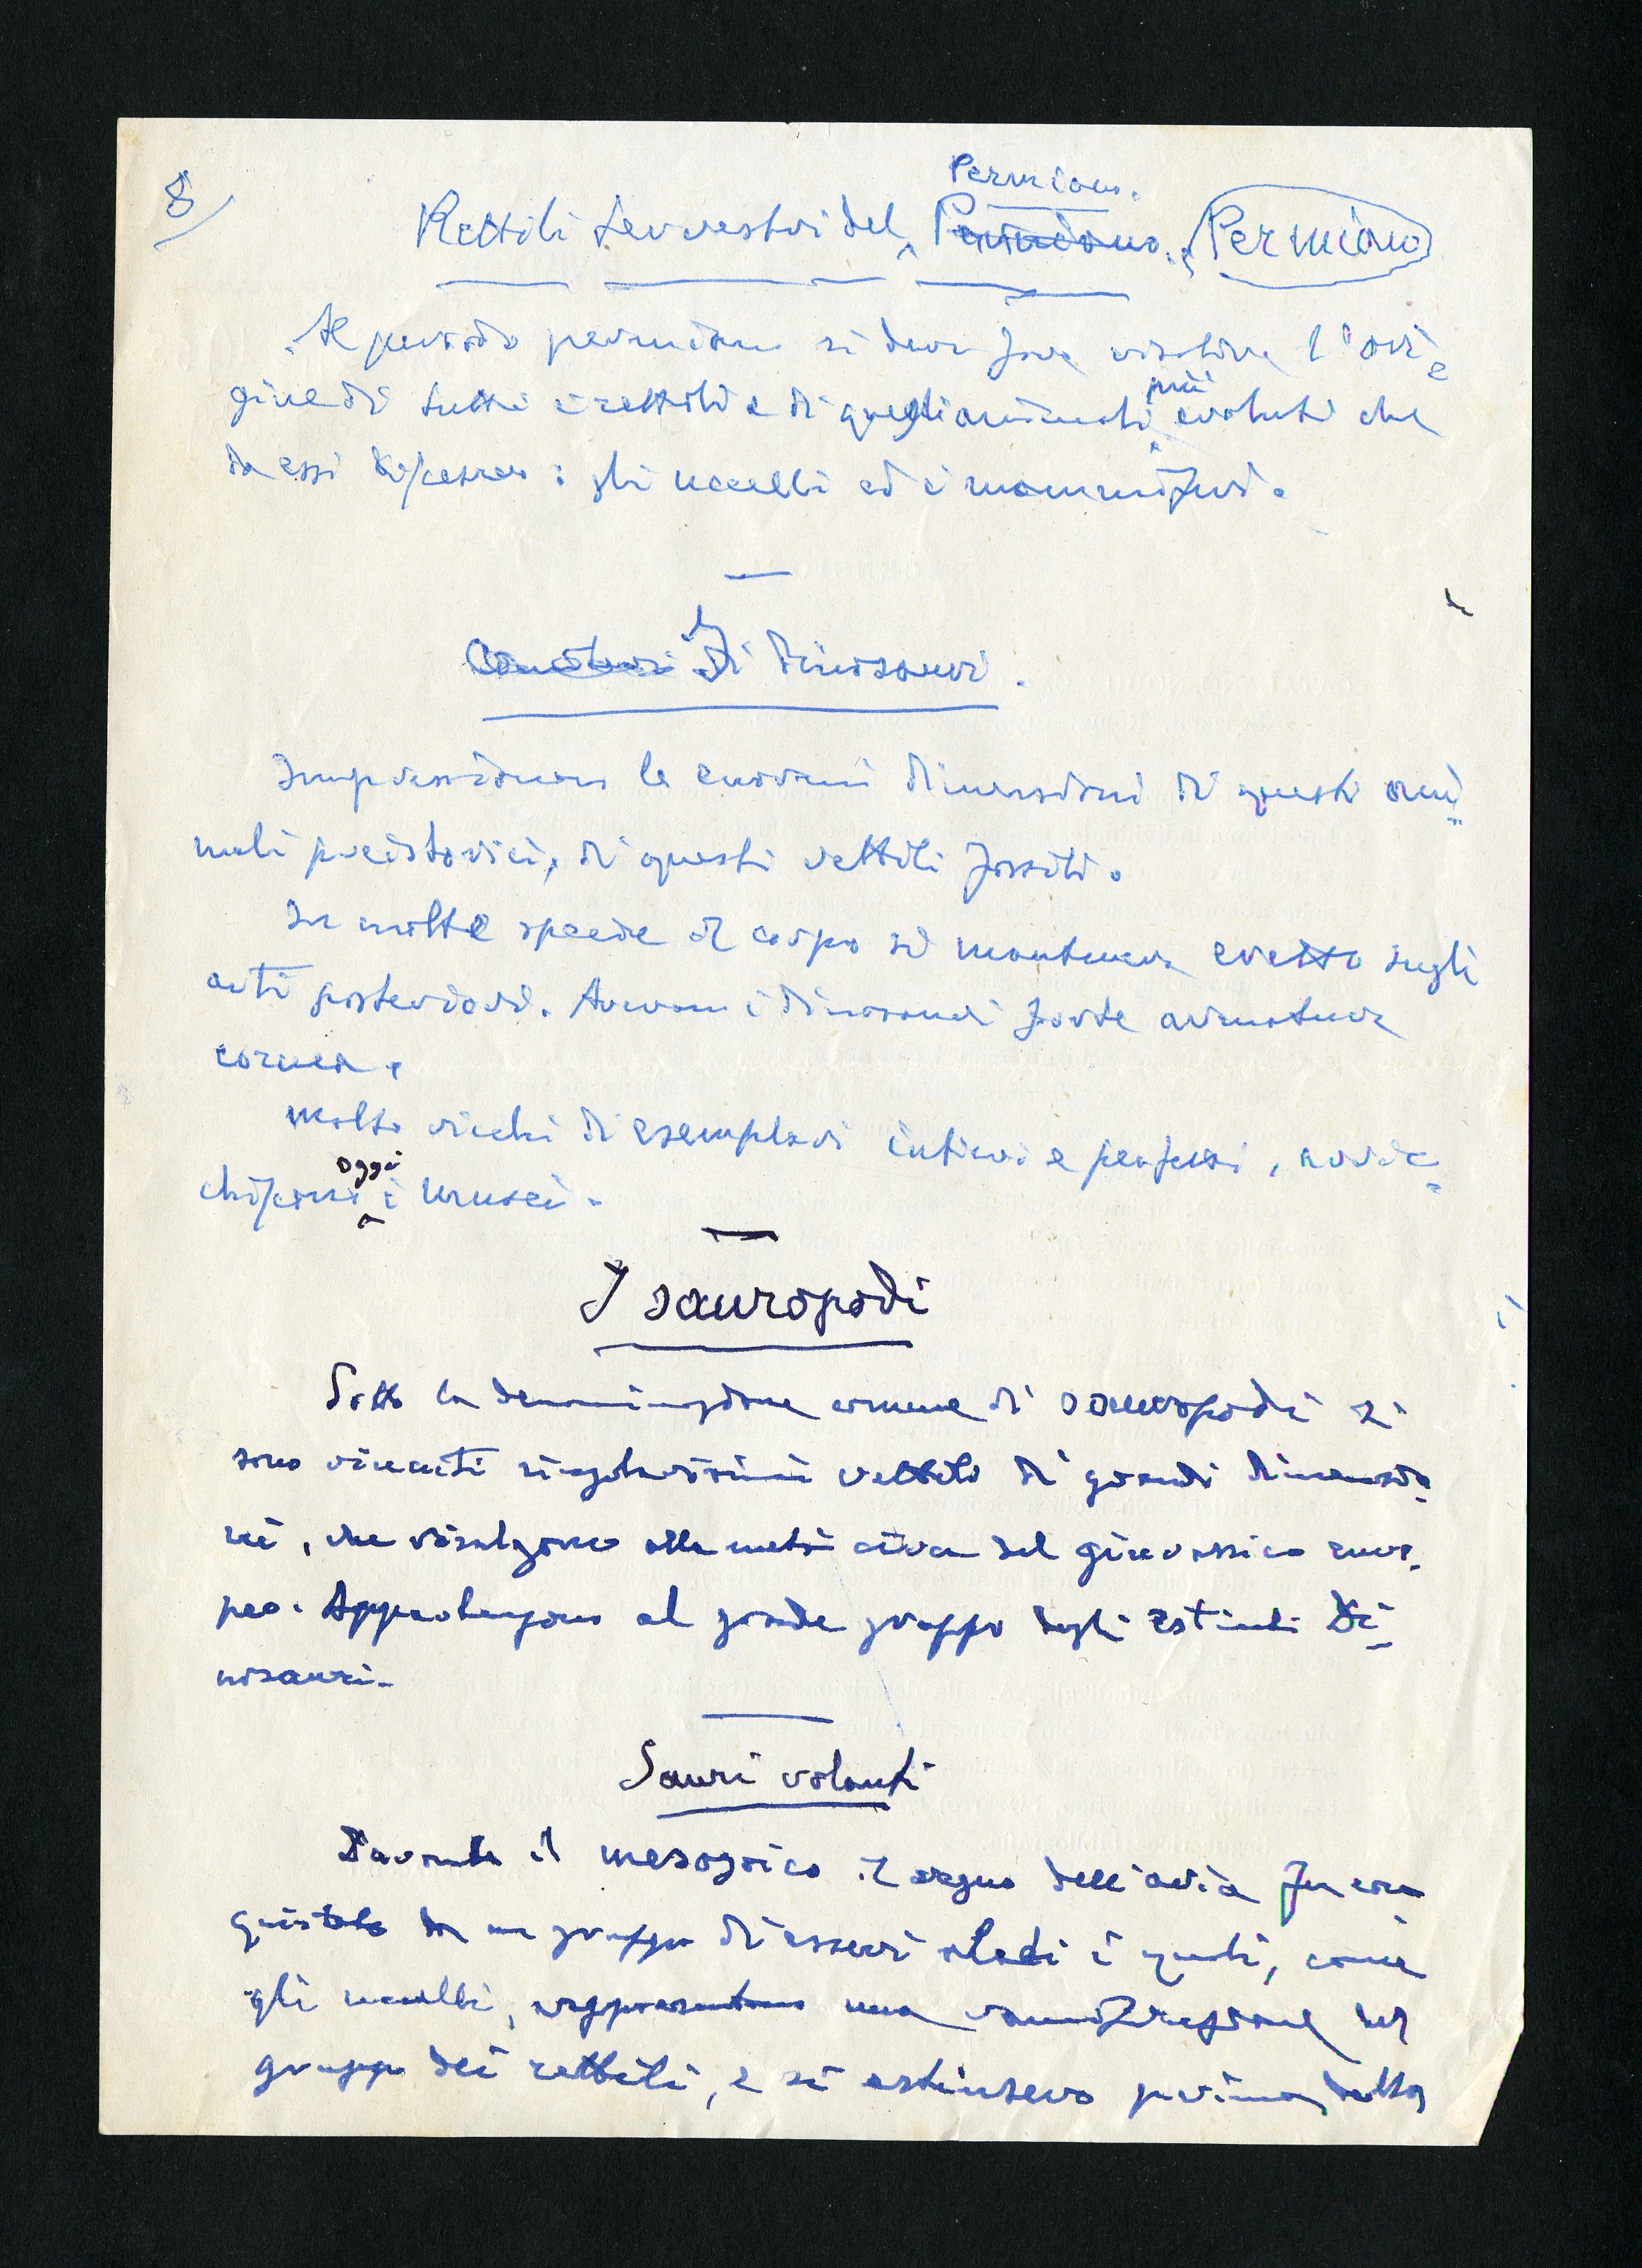 8/
Permiano.
Rettili terrestri del Permiano. Permiano
Al periodo permiano si deve fare risalire l'ori=
gine di tutti i rettili e di quegli animali più evoluti che
da essi : gli uccelli ed i mammiferi.
I dinosauri.
Impressionano le enormi dimensioni di questi ani=
mali preistorici, di questi rettili fossili.
In molte specie il corpo si manteneva eretto sugli
arti posteriori. Avevano i dinosauri forte armatura
cornea.
Molto ricchi di esemplari interi e perfetti, arric=
chiscono oggi i musei.
I sauropodi
Sotto la denominazione comune di sauropodi si
sono riuniti singolarissimi rettili di grandi dimensio=
ni, che risalgono alla metà circa del giurassico euro=
peo. Appartengono al grande gruppo degli estinti Di=
nosauri.
Sauri volanti
Durante il mesozoico il regno dell'aria fu con
quistato da un gruppo di esseri alati i quali, come
gli uccelli, rappresentano una ramificazione del
gruppo dei rettili, e si estinsero prima della